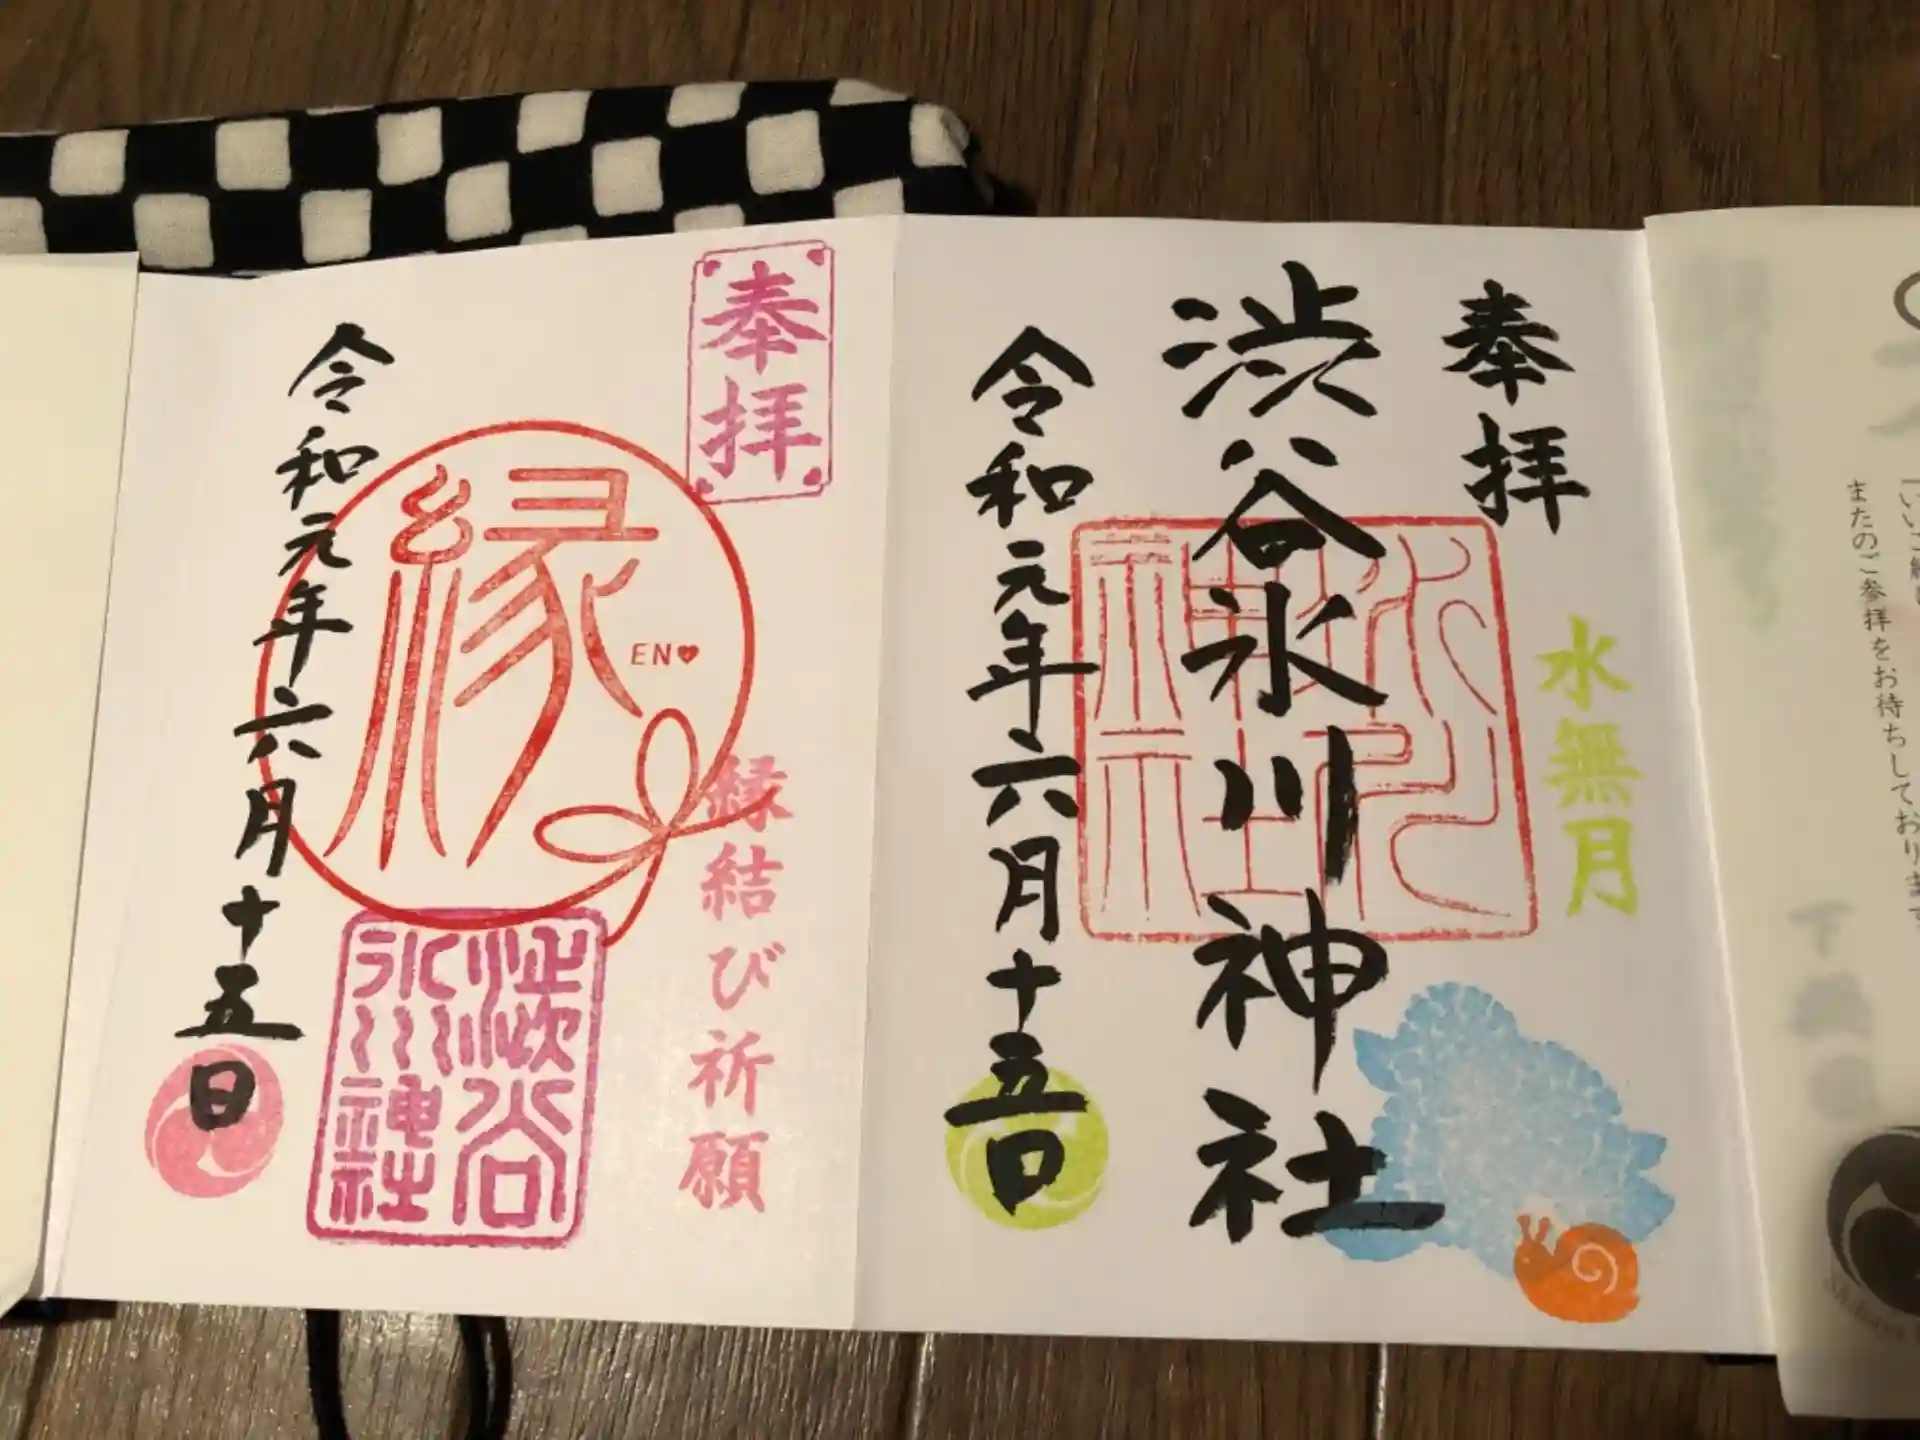 いいご縁
またのご参拝をお待ちしております
奉拝
水無月
渋谷氷川神社
令和元年六月十五日
奉拝
縁結び祈願
縁
EN♥
渋谷
氷川神社
令和元年六月十五日